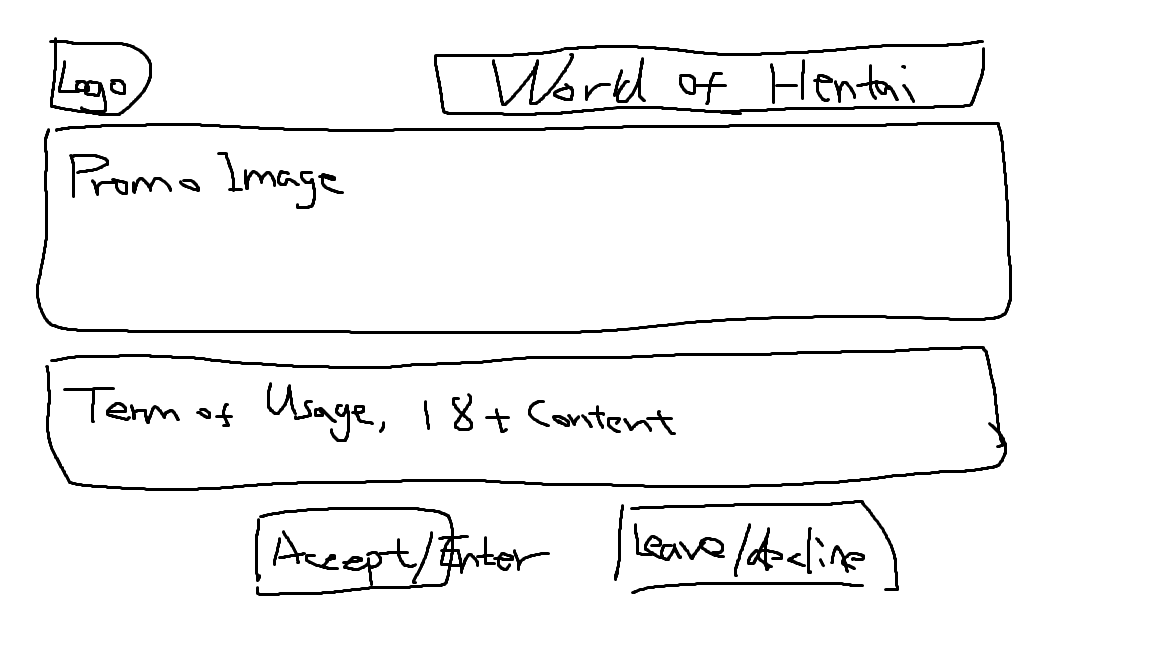 Logo
World of Hentai
Promo Image
Term of Usage, 18+ Content
Accept/Enter
Leave/decline